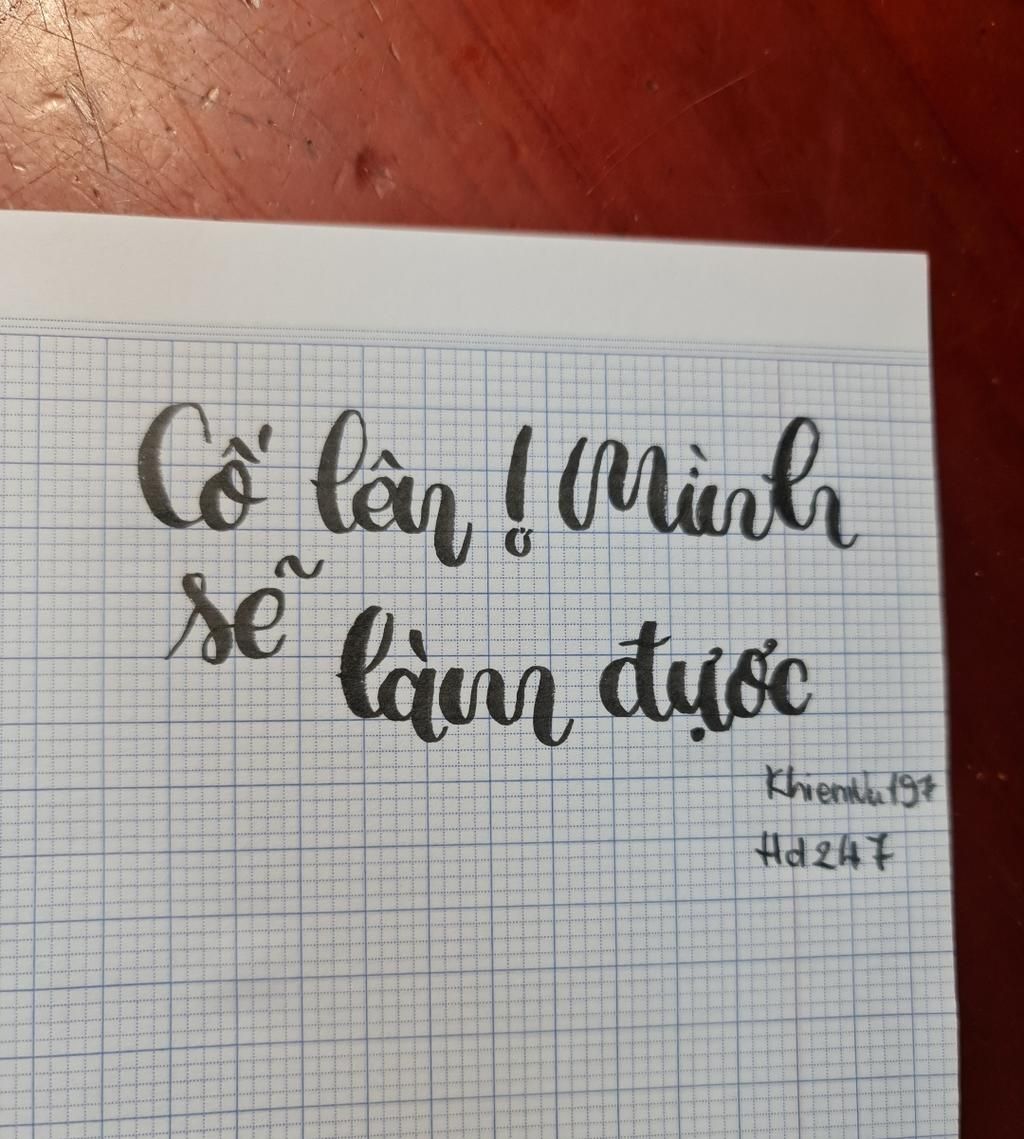 Cố lên! Mình
sẽ làm được
KhienNu197
Hd247